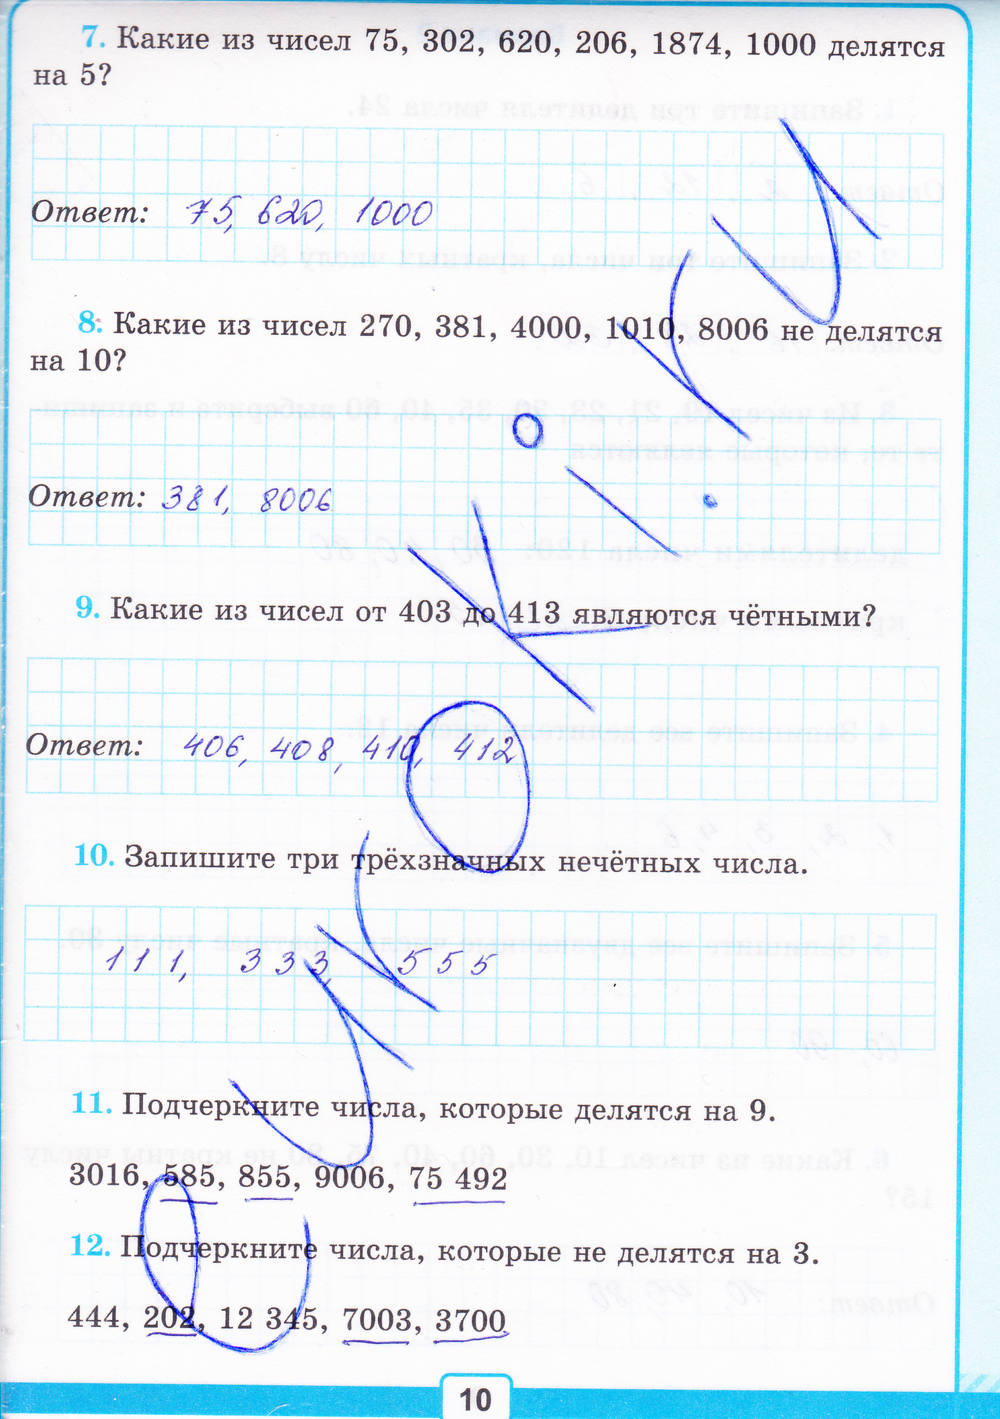 7. Какие из чисел 75, 302, 620, 206, 1874, 1000 делятся
на 5?
Ответ: 75, 620, 1000
8. Какие из чисел 270, 381, 4000, 1010, 8006 не делятся
на 10?
Ответ: 381, 8006
9. Какие из чисел от 403 до 413 являются чётными?
Ответ: 406, 408, 410, 412
10. Запишите три трёхзначных нечётных числа.
111, 333, 555
11. Подчеркните числа, которые делятся на 9.
3016, 585, 855, 9006, 75 492
12. Подчеркните числа, которые не делятся на 3.
444, 202, 12 345, 7003, 3700
10